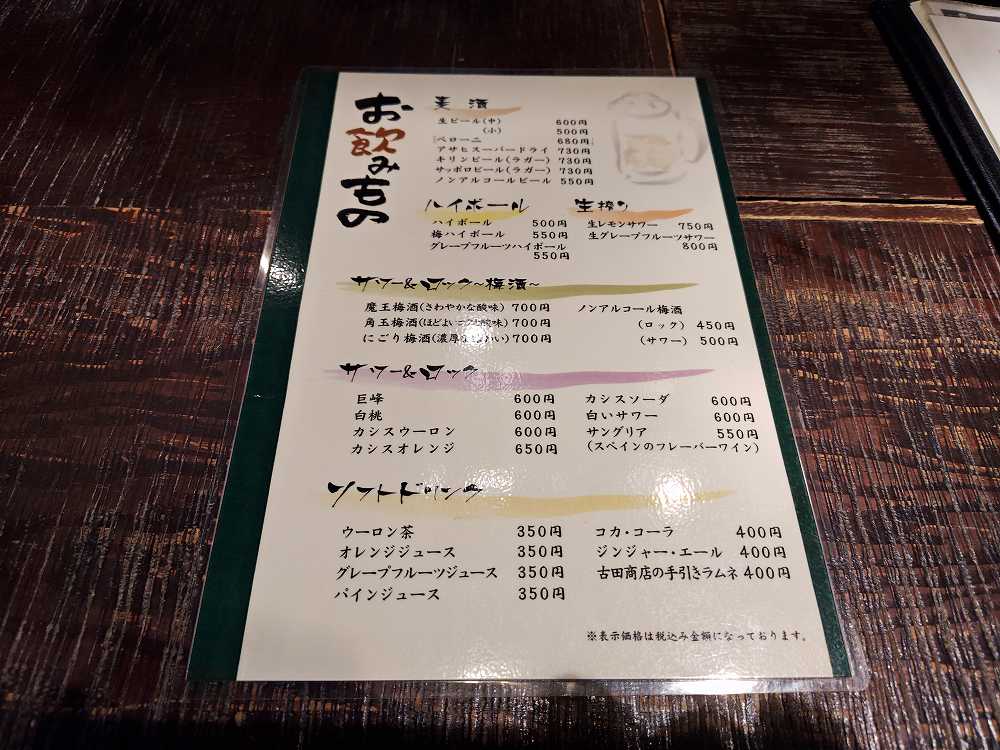 お飲みもの
麦酒
生ビール(中) 600円
(小) 500円
ペローニ 680円
アサヒスーパードライ 730円
キリンビール(ラガー) 730円
サッポロビール(ラガー) 730円
ノンアルコールビール 550円
ハイボール
ハイボール 500円
梅ハイボール 550円
グレープフルーツハイボール
550円
生搾り
生レモンサワー 750円
生グレープフルーツサワー
800円
サワー&ロック~梅酒~
魔王梅酒(さわやかな酸味) 700円
角玉梅酒(ほどよい 酸味) 700円
にごり梅酒(濃厚 い) 700円
ノンアルコール梅酒
(ロック) 450円
(サワー) 500円
サワー&ロック
巨峰 600円
白桃 600円
カシスウーロン 600円
カシスオレンジ 650円
カシスソーダ 600円
白いサワー 600円
サングリア 550円
(スペインのフレーバーワイン)
ソフトドリンク
ウーロン茶 350円
オレンジジュース 350円
グレープフルーツジュース 350円
パインジュース 350円
コカ・コーラ 400円
ジンジャー・エール 400円
古田商店の手引きラムネ 400円
※表示価格は税込み金額になっております。